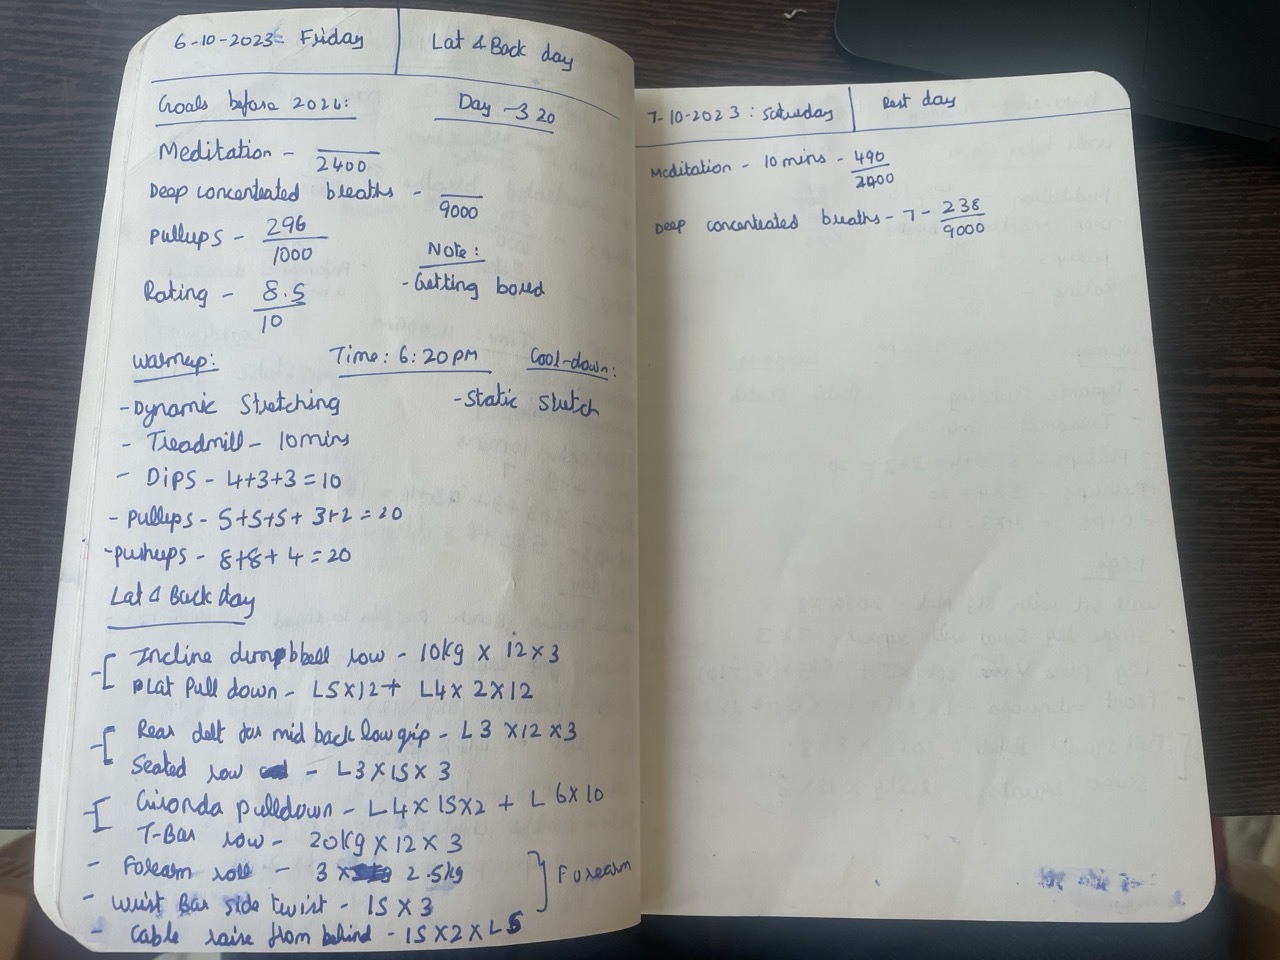 6-10-2023 - Friday
Lat & Back day
Goals before 2024:
Day - 320
Meditation - /2400
Deep concentrated breaths - /9000
Pullups - 296/1000
Note:
Rating - 8.5/10
- Getting bored
Warmup:
Time: 6:20 PM
Cool-down:
- Dynamic Stretching
- Static Stretch
- Treadmill - 10 mins
- Dips - 4+3+3=10
- Pullups - 5+5+5+3+2=20
- Pushups - 8+8+4=20
Lat & Back day
Incline dumpbbell row - 10kg x 12 x 3
Lat Pull down - L5 x 12 + L4 x 2 x 12
Rear delt for mid back low grip - L3 x 12 x 3
Seated row - L3 x 15 x 3
Gironda pulldown - L4 x 15 x 2 + L6 x 10
T-Bar row - 20kg x 12 x 3
- Forearm roll - 3 x 2.5kg
Forearm
- Wrist Bar side twist - 15 x 3
- Cable raise from behind - 15 x 2 x L5
7-10-2023 : Saturday
Rest day
Meditation - 10 mins - 490/2400
Deep concentrated breaths - 7 - 238/9000